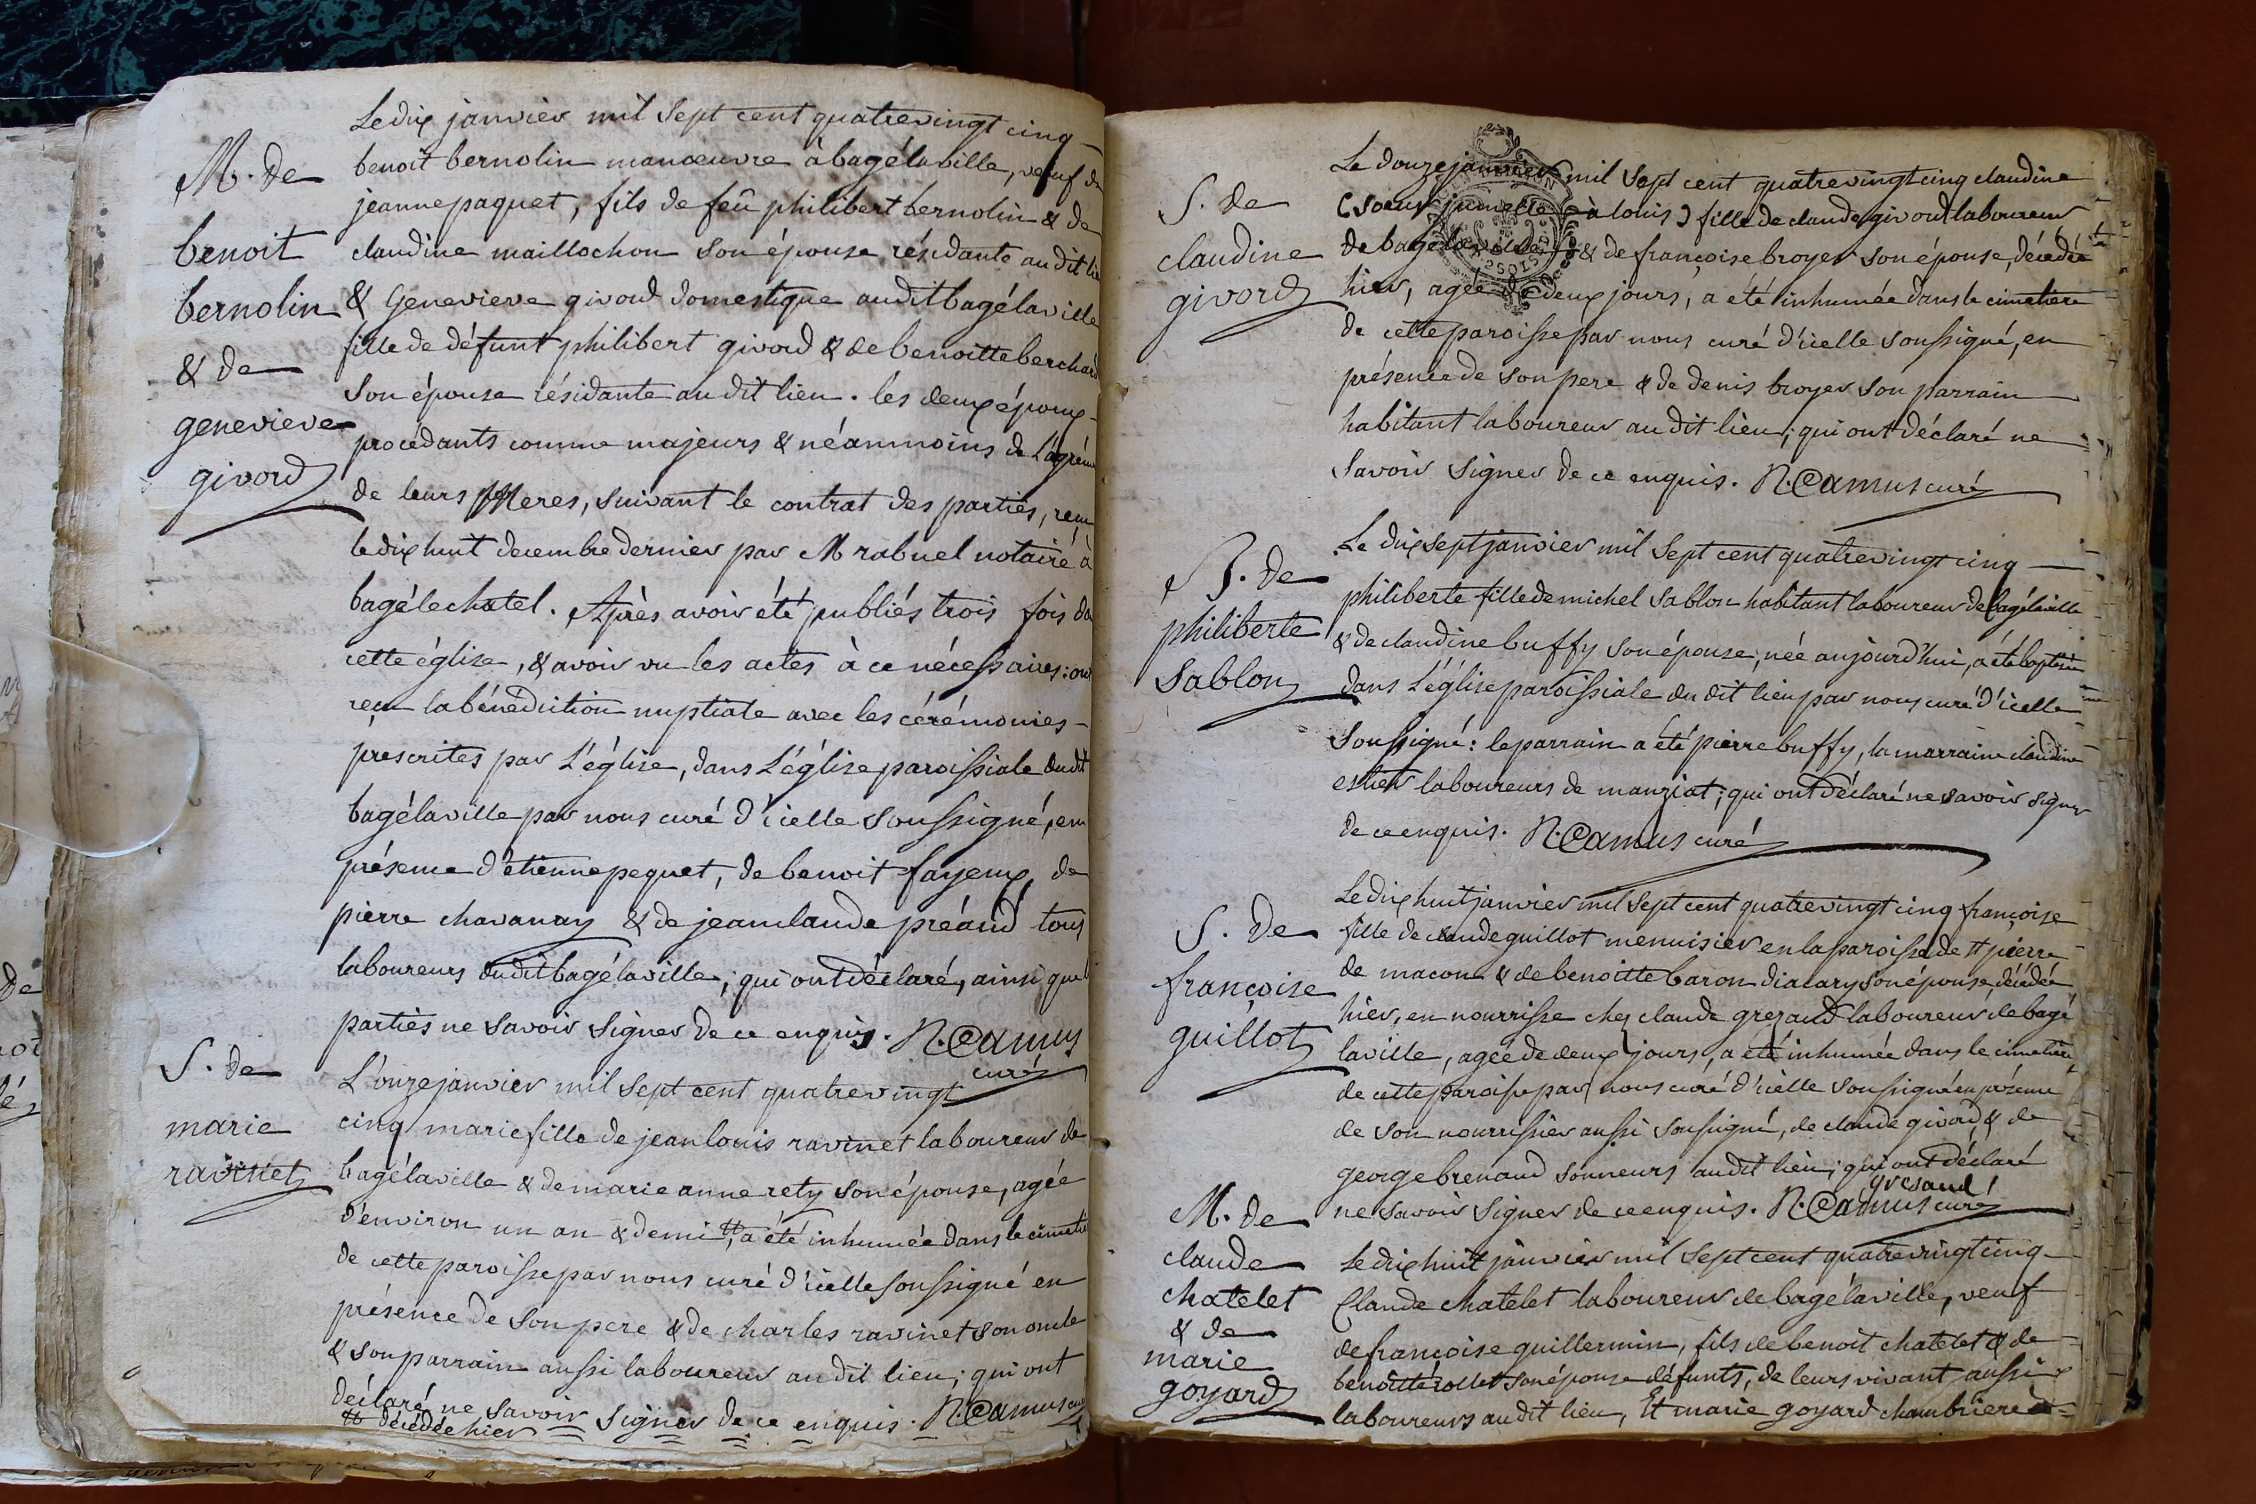 Le dix janvier mil sept cent quatrevingt cinq
M. de
benoit
bernolin
& de
genevieve
givord
benoit bernolin manoeuvre à bagélaville, veuf de
jeanne paquet, fils de feû philibert bernolin & de
claudine maillochon son épouse résidante au dit lieu
& Genevieve givord domestique audit bagélaville
fille de défunt philibert givord & de benoitte berchard
son épouse résidante au dit lieu. les deux époux
procédants comme majeurs & néanmoins de l'agrém
de leurs Meres, suivant le contrat des parties, reçu
le dix huit decembre dernier par M rabuel notaire à
bagélechatel. Après avoir été publiés trois fois da
cette église, & avoir vu les actes à ce nécessaires: ont
reçu la bénédiction nuptiale avec les cérémonies
prescrites par l'église, dans l'église paroissiale dudit
bagélaville par nous curé d'icelle soussigné, en
présence d'étienne pequet, de benoit fayeux, de
pierre chavanay & de jeanclaude préaud tous
laboureurs dudit bagélaville; qui ont déclaré, ainsi que l
parties ne savoir signer de ce enquis. N. Camus
curé
S. de
marie
ravinet
L'onze janvier mil sept cent quatrevingt
cinq marie fille de jean louis ravinet laboureur de
bagélaville & de marie anne rety son épouse, agée
d'environ un an & demi #, a été inhumée dans le cimetie
de cette paroisse par nous curé d'icelle soussigné en
présence de son pere & de charles ravinet son oncle
& son parrain aussi laboureur au dit lieu; qui ont
déclaré ne savoir signer de ce enquis. N. Camus curé
# décédée hier
S. de
claudine
givord
Le douze janvier mil sept cent quatrevingt cinq claudine
(soeur jumelle à louis) fille de claude givord laboureur
de bagélaville & de françoise broyer son épouse, décédée
hier, agée de deux jours, a été inhumée dans le cimetiere
de cette paroisse par nous curé d'icelle soussigné, en
présence de son pere & de denis broyer son parrain
habitant laboureur au dit lieu; qui ont déclaré ne
savoir signer de ce enquis. N. Camus curé
B. de
philiberte
sablon
Le dix sept janvier mil sept cent quatrevingt cinq
philiberte fille de michel sablon habitant laboureur de bagélaville
& de claudine buffy son épouse; née aujourd'hui, a été baptisée
dans l'église paroissiale du dit lieu par nous curé d'icelle
soussigné: le parrain a été pierre buffy, la marraine claudine
esther laboureurs de manziat; qui ont déclaré ne savoir signer
de ce enquis. N. Camus curé
S. de
françoise
guillot
Le dix huit janvier mil sept cent quatrevingt cinq françoise
fille de claude guillot menuisier en la paroisse de st pierre
de macon & de benoitte baron dialary son épouse, décédée
hier, en nourrisse chez claude grezaud laboureur de bagé
laville, agée de deux jours, a été inhumée dans le cimetiere
de cette paroisse par nous curé d'icelle soussigné en présence
de son nourrissier aussi soussigné, de claude givord & de
george brenaud sonneurs audit lieu; qui ont déclaré
ne savoir signer de ce enquis. N. Camus curé
gresaud
M. de
claude
chatelet
& de
marie
goyard
Le dix huit janvier mil sept cent quatrevingt cinq
Claude chatelet laboureur de bagélaville, veuf
de françoise guillermin, fils de benoit chatelet & de
benoitte rollet son épouse défunts, de leurs vivant aussi
laboureurs au dit lieu, Et marie goyard chambriere